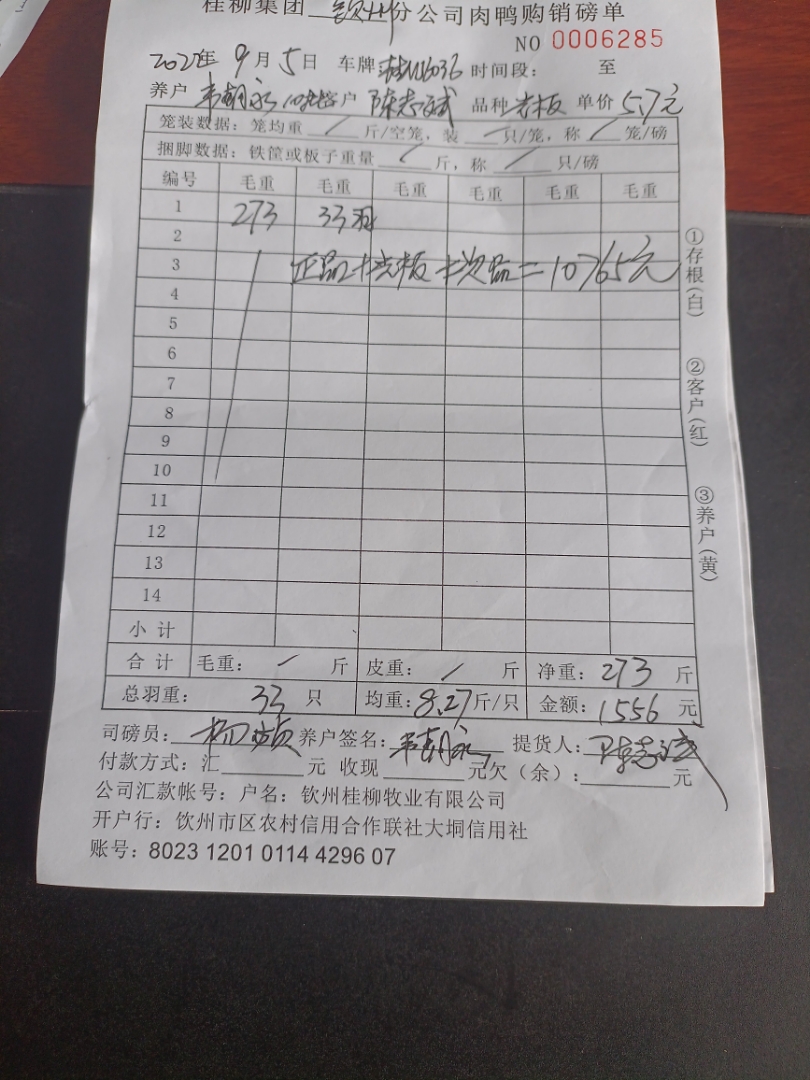 桂柳集团 钦州 分公司肉鸭购销磅单
NO 0006285
2022年 9月 5日 车牌 时间段： 至
养户 韦朝永 客户 陈志斌 品种 老板 单价 5.7元
笼装数据：笼均重 / 斤/空笼，装 / 只/笼，称 / 笼/磅
捆脚数据：铁筐或板子重量 / 斤，称 / 只/磅
编号 毛重 毛重 毛重 毛重 毛重 毛重
1 273 33羽
2
3 正品+老板+次品=10765元
4
5
6
7
8
9
10
11
12
13
14
小计
合计 毛重： / 斤 皮重： / 斤 净重：273 斤
总羽重： 33 只 均重：8.27斤/只 金额：1556元
司磅员： 养户签名：韦朝永 提货人：陈志斌
付款方式：汇 元 收现 元欠（余）： 元
公司汇款帐号：户名：钦州桂柳牧业有限公司
开户行：钦州市区农村信用合作联社大垌信用社
账号：8023 1201 0114 4296 07
①存根（白）
②客户（红）
③养户（黄）